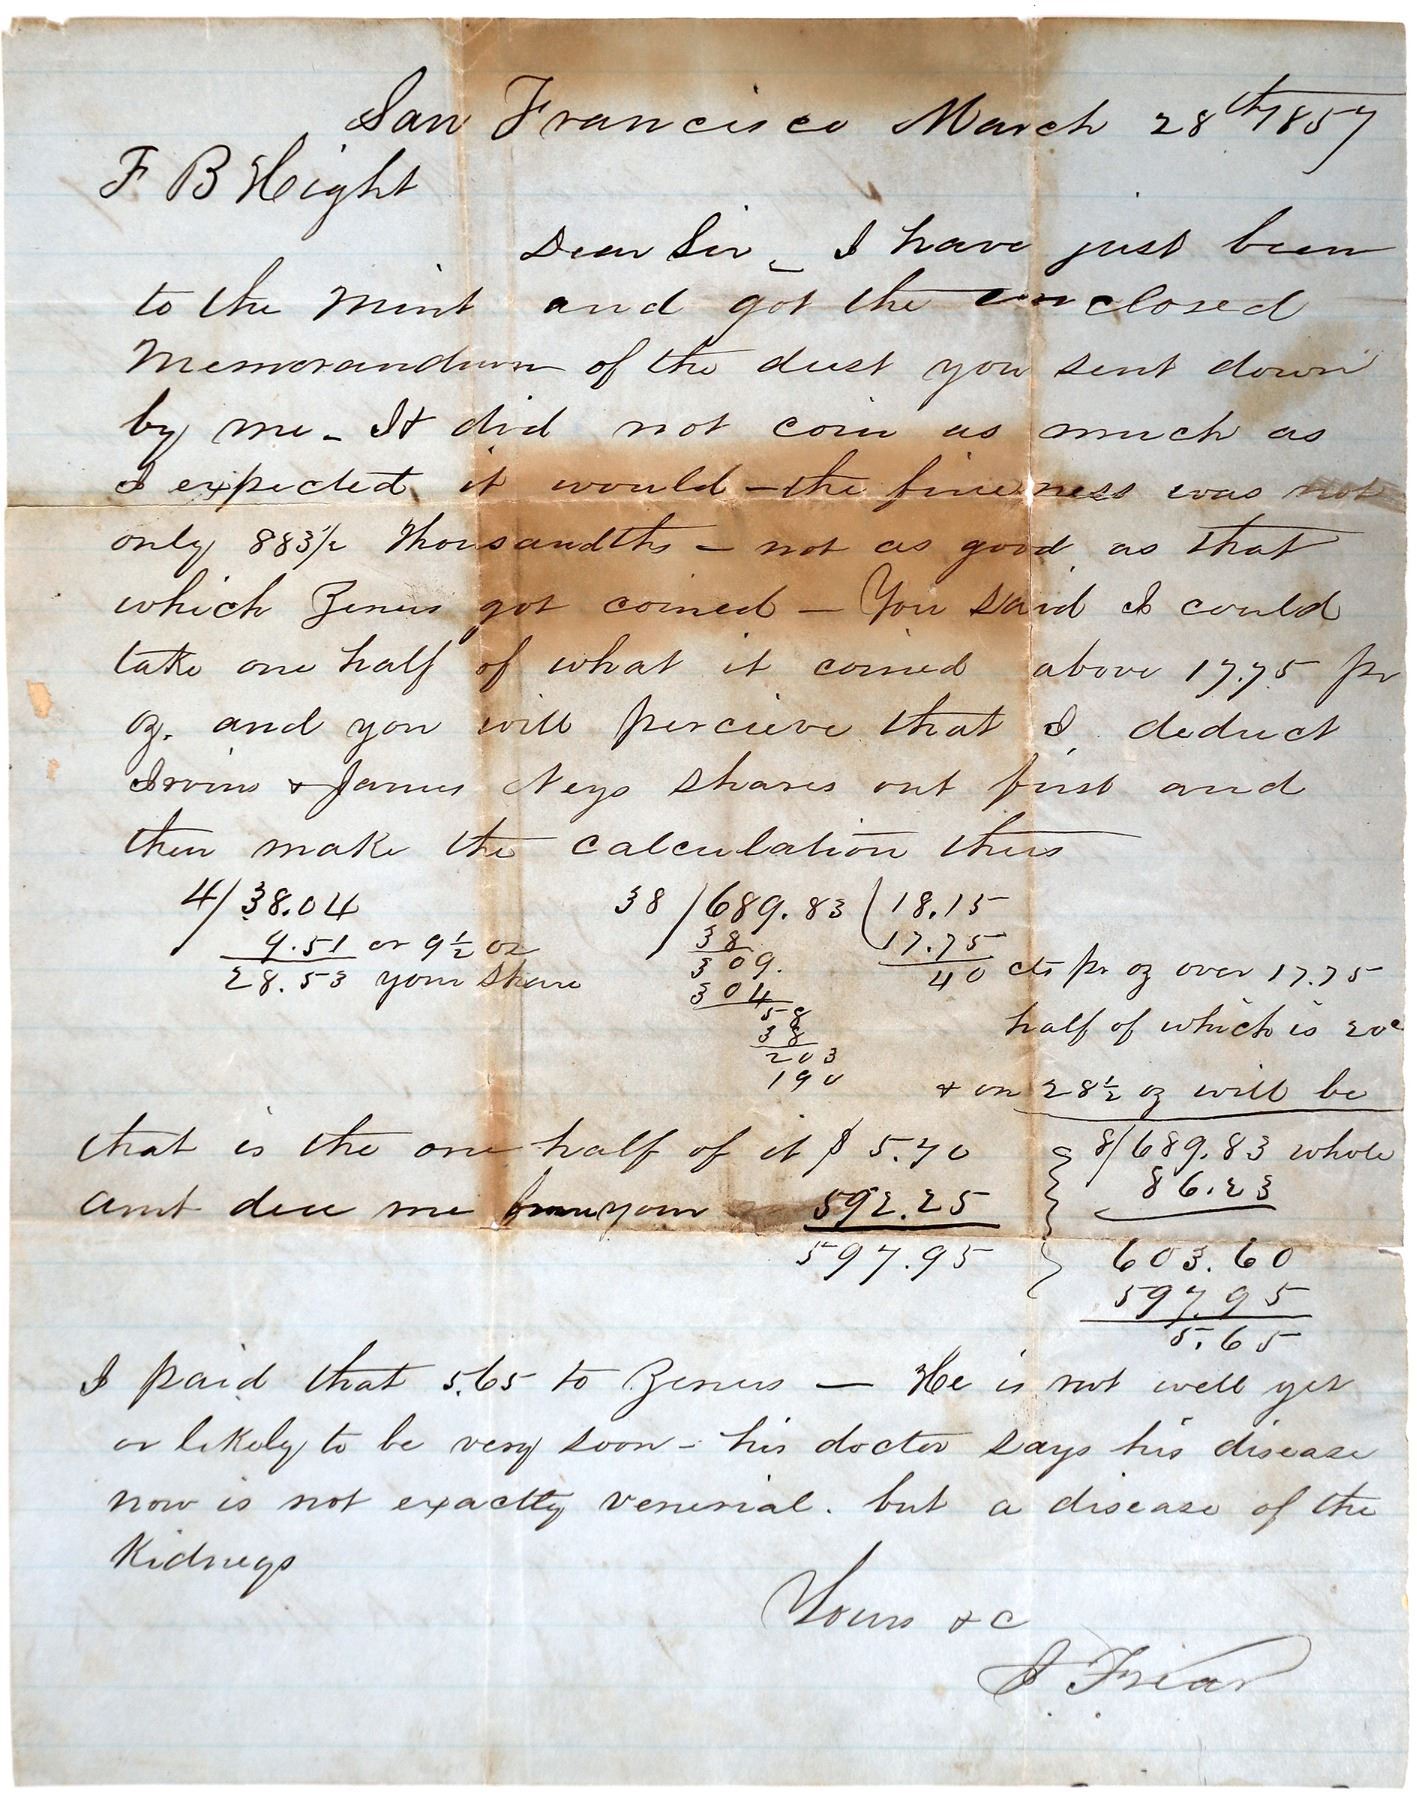 San Francisco March 28th 1857
F B Hight
Dear Sir - I have just been
to the Mint and got the enclosed
Memorandum of the dust you sent down
by me - It did not coin as much as
I expected it would - the fineness was not
only 883½ Thousandths - not as good as that
which Zenus got coined - You said I could
take one half of what it coined above 17.75 pr
oz. and you will percieve that I deduct
Irvins & James Neys shares out first and
then make the calculation thus
4/38.04 38/689.83(18.15
9.51 or 9½ oz 38 17.75
28.53 your share 309. 40 cts pr oz over 17.75
304
58 half of which is 20c
38
203
190 & on 28½ oz will be
that is the one half of it $ 5.70 8/689.83 whole
amt due me from your 592.25 86.23
597.95 603.60
597.95
5.65
I paid that 5.65 to Zenus - He is not well yet
or likely to be very soon - his doctor says his disease
now is not exactly venerial. but a disease of the
Kidneys
Yours &c
Friar